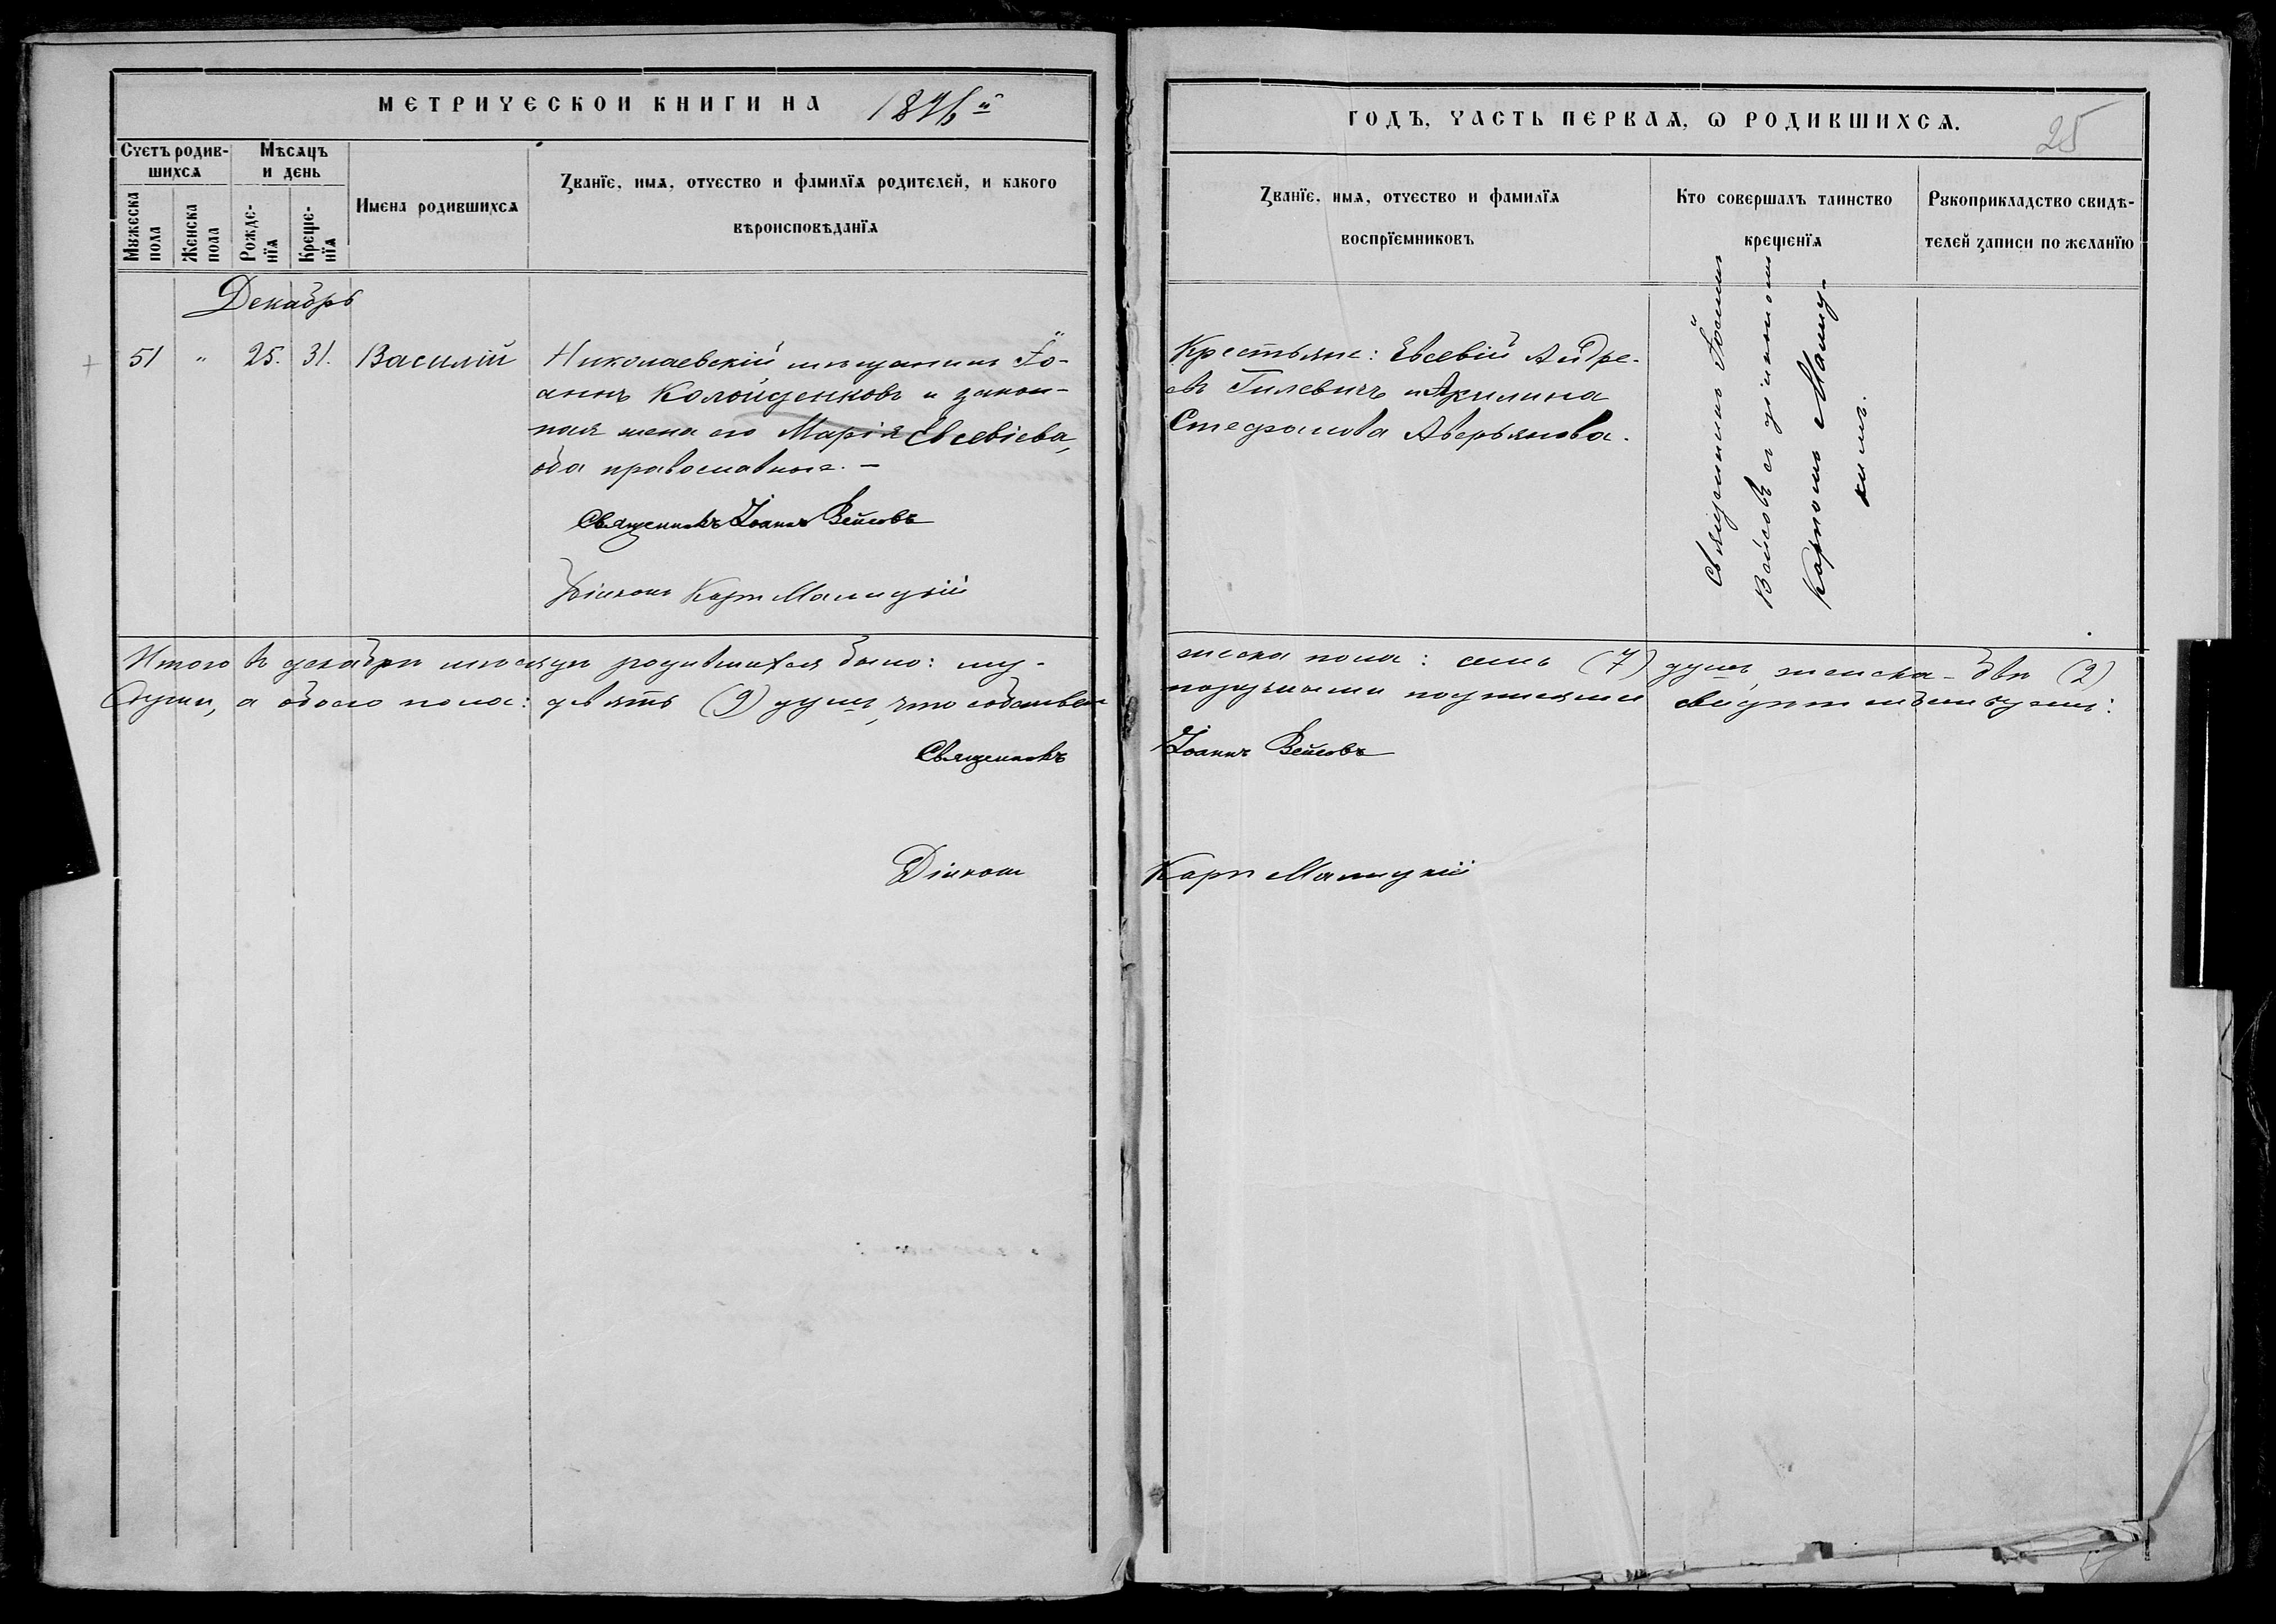 МЕТРИЧЕСКОЙ КНИГИ НА 1876й
ГОДЪ, ЧАСТЬ ПЕРВАЯ, Ѡ РОДИВШИХСѦ.
25
Счетъ родив-
шихсѧ
Мѣсѧцъ
и день
Мꙋжеска
пола
Женска
пола
Рожде-
нїѧ
Креще-
нїѧ
Имена родившихсѧ
Званїе, имѧ, отчество и фамилїѧ родителей, и какого
вѣроисповѣданїѧ
Званїе, имѧ, отчество и фамилїѧ
воспрїемниковъ
Кто совершалъ таинство
крещенїѧ
Рꙋкоприкладство свидѣ-
телей записи по желанїю
Декабрь
51 " 25. 31. Василій
Николаевскій мѣщанинъ Іо-
аннъ Колойденковъ и закон-
ная жена его Марія Евсевіева,
оба православные. –
Священникъ Іоаннъ Вейсовъ
Діаконъ Карпъ Малицкій
Крестьяне: Евсевій Андре-
евъ Гилевичъ и Акилина
Стефанова Аверьянова.
Священникъ Іоаннъ
Вейсовъ съ діакономъ
Карпомъ Малиц-
кимъ.
Итого въ декабрѣ мѣсяцѣ родившихся было: му-
жеска пола: семь (7) душъ, женска – двѣ (2)
души, а обоего пола: девять (9) душъ, что собствен
норучными подписями свидѣтельствуемъ:
Священникъ Іоаннъ Вейсовъ
Діаконъ Карпъ Малицкій